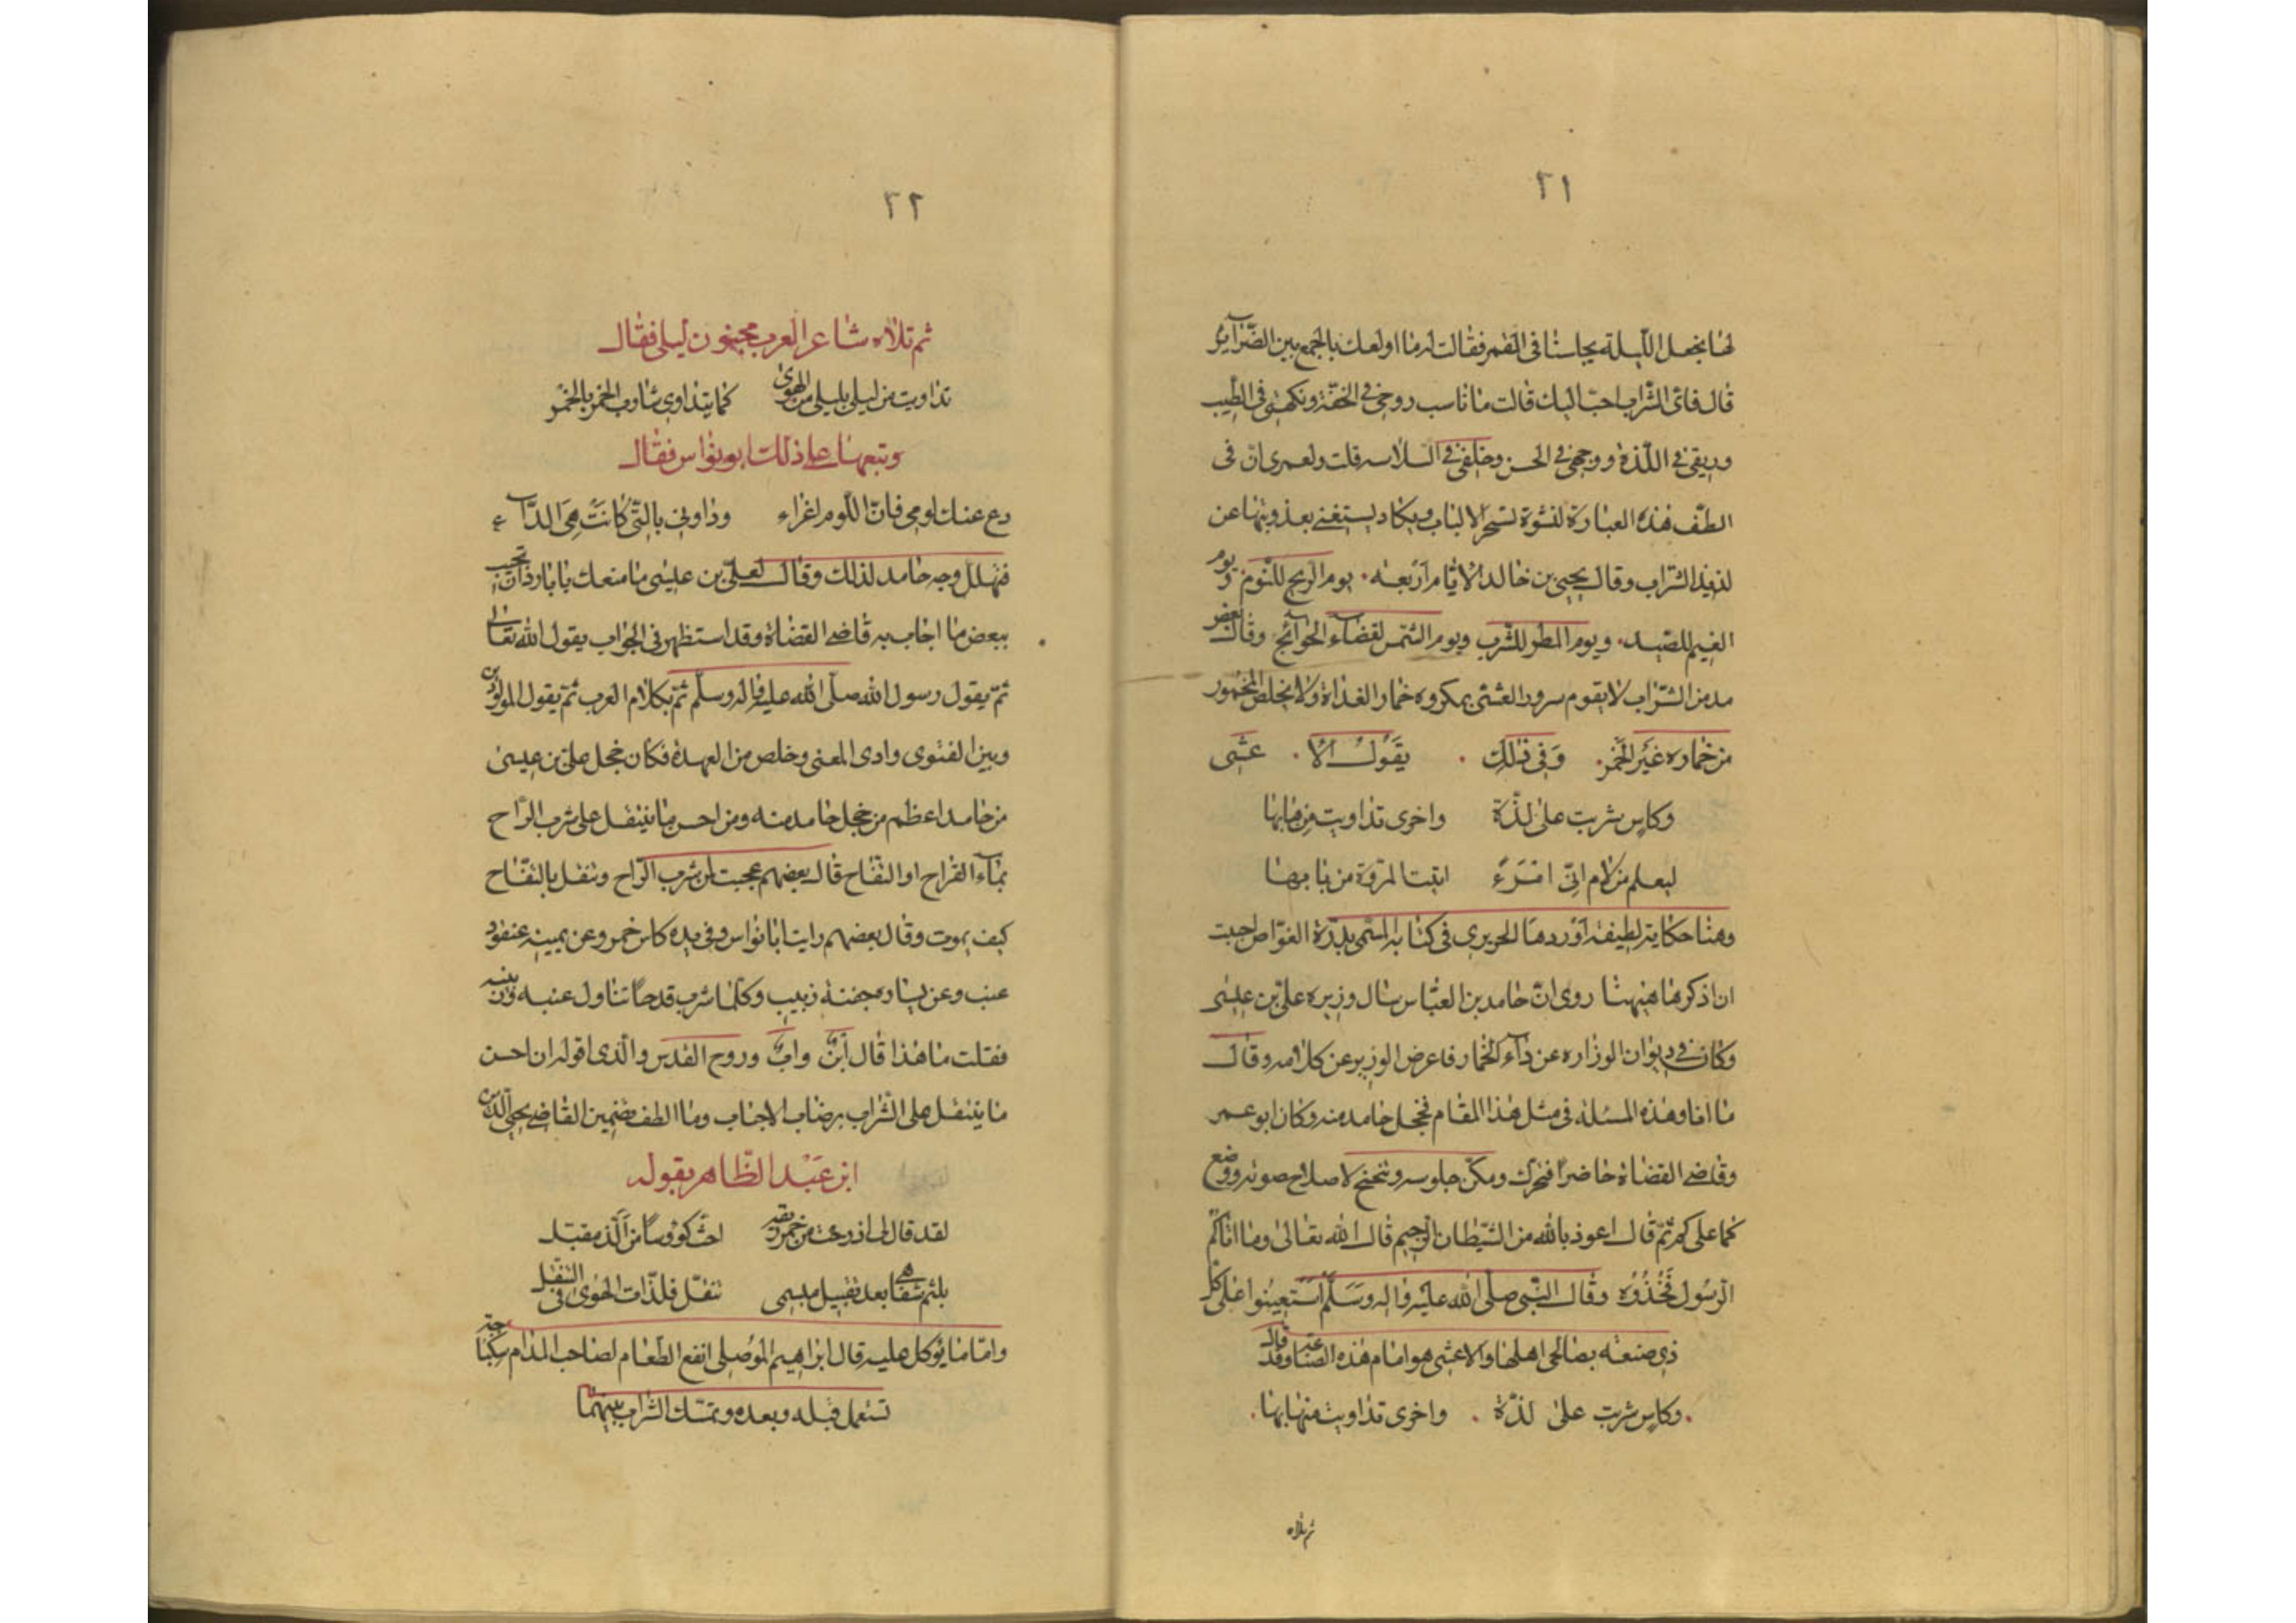 ٢١
لها نجعل الليلة مجلسنا فى القمر فقالت له ما اولعك بالجمع بين الضّرآير
قال فاىّ الشراب احبّ اليك قالت ما ناسب روحى فى الخفّة ونكهتى فى الطيب
وريقى فى اللّذة ووجهى فى الحسن وخلقى فى السلاسه قلت ولعمرى انّ فى
الطف هذه العبارة لنشوة تسحر الالباب ويكاد يستغنى بعذوبتها عن
لذيذ الشراب وقال يحيى بن خالد الايّام اربعه يوم الريح للنّوم ويوم
الغيم للصّيد ويوم المطر للشّرب ويوم الشّمس لقضآء الحوآئج وقال بعض
مدمن الشّراب لا يقوم سرور العشى بمكروه خمار الغداة ولا يخلص المخمور
من خماره غَير الخَمر وَفى ذٰلك يقَول الاعشى
وكاس شربت على لذّة واخرى تداويت منها بها
ليعلم من لام انّى امَرَءٌ اتيت المروّة من بابها
وهنا حكاية لطيفة اوردها الحريرى فى كتابه المسمّى بدرّة الغوّاص احببت
ان اذكرها هيهنا روى انّ حامد بن العبّاس سال وزيره علىّ بن عيسى
وكان فى ديوان الوزاره عن دآء الخمار فاعرض الوزير عن كلامه وقال
ما انا وهذه المسئلة فى مثل هذا المقام فخجل حامد منه وكان ابو عمر
وقاضى القضاة حاضرًا فتحرك ومكّن جلوسه وتنحنح لاصلاح صوته ووضع
كما على كم ثمّ قال اعوذ بالله من الشّيطان الرجيم قال الله تعالى وما اتاكم
الرسُول فَخُذُوُه وقال النّبى صلّى الله عليه واله وَسَلّم اَستَعِينُوا عَلى كل
ذى صنعة بصالحى اهلها والاعشى هو امام هذه الصناعة وقد قال
وكاس شربت على لذّة واخرى تداويت منها بها
ثم تلاه
٢٢
ثم تلاه شاعر العرب مجنون ليلى فقال
تداويت من ليلى بليلى من الهوىٰ كما يتداوى شارب الخمر بالخمر
وتبعهما على ذلك ابو نواس فقال
دع عنك لومى فانّ اللّوم اغراء وداونى بالتّى كانَتْ هِىَ الدّآء
فتهلل وجه حامد لذلك وقال لعلىّ بن عليسى ما منعك يا بارد ان تجيب
ببعض ما اجاب به قاضى القضاة وقد استظهر فى الجواب بقول الله تعالى
ثمّ بقول رسول الله صلّى الله عليه واله وسلّم ثمّ بكلام العرب ثمّ بقول المولدين
وبين الفتوى وادى المعنى وخلص من العهدة فكان خجل على بن عيسىٰ
من حامد اعظم من خجل حامد منه ومن احسن ما يتنقل على شرب الرّاح
بمآء القراح او التفّاح قال بعضهم عجبت لمن شرب الرّاح وتنقل بالتفّاح
كيف يموت وقال بعضهم رايت ابا نواس وفى يده كاس خمر وعن يمينه عنقود
عنب وعن يساره جفنة زبيب وكلما شرب قدحًا تناول عنبه
فقلت ما هذا قال ابنٌ وابٌ وروح القدس والّذى اقوله ان احسن
ما يتنقل على الشّراب برضاب الاحباب وما الطف تضمين القاضى محيى الدّين
ابن عَبْد الظّاهر بقوله
لقد قال لى اذ رحت من خمر ريقه احثّ كؤوسًا من الَذّ مقبّل
بلثم شفاهى بعد تقبيل مبسمى تنقّل فلذّات الهوىٰ فى التّنقّل
وامّا ما يؤكل عليه قال ابراهيم الموُصلى انفع الطعام لصاحب المدام
تستعمل قبله وبعده ويمسّك الشّراب بينهما